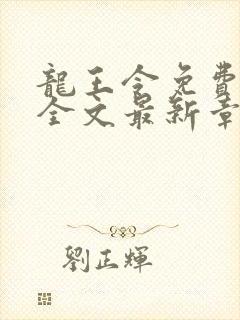 龍王令免費
全文最新章
劉正輝